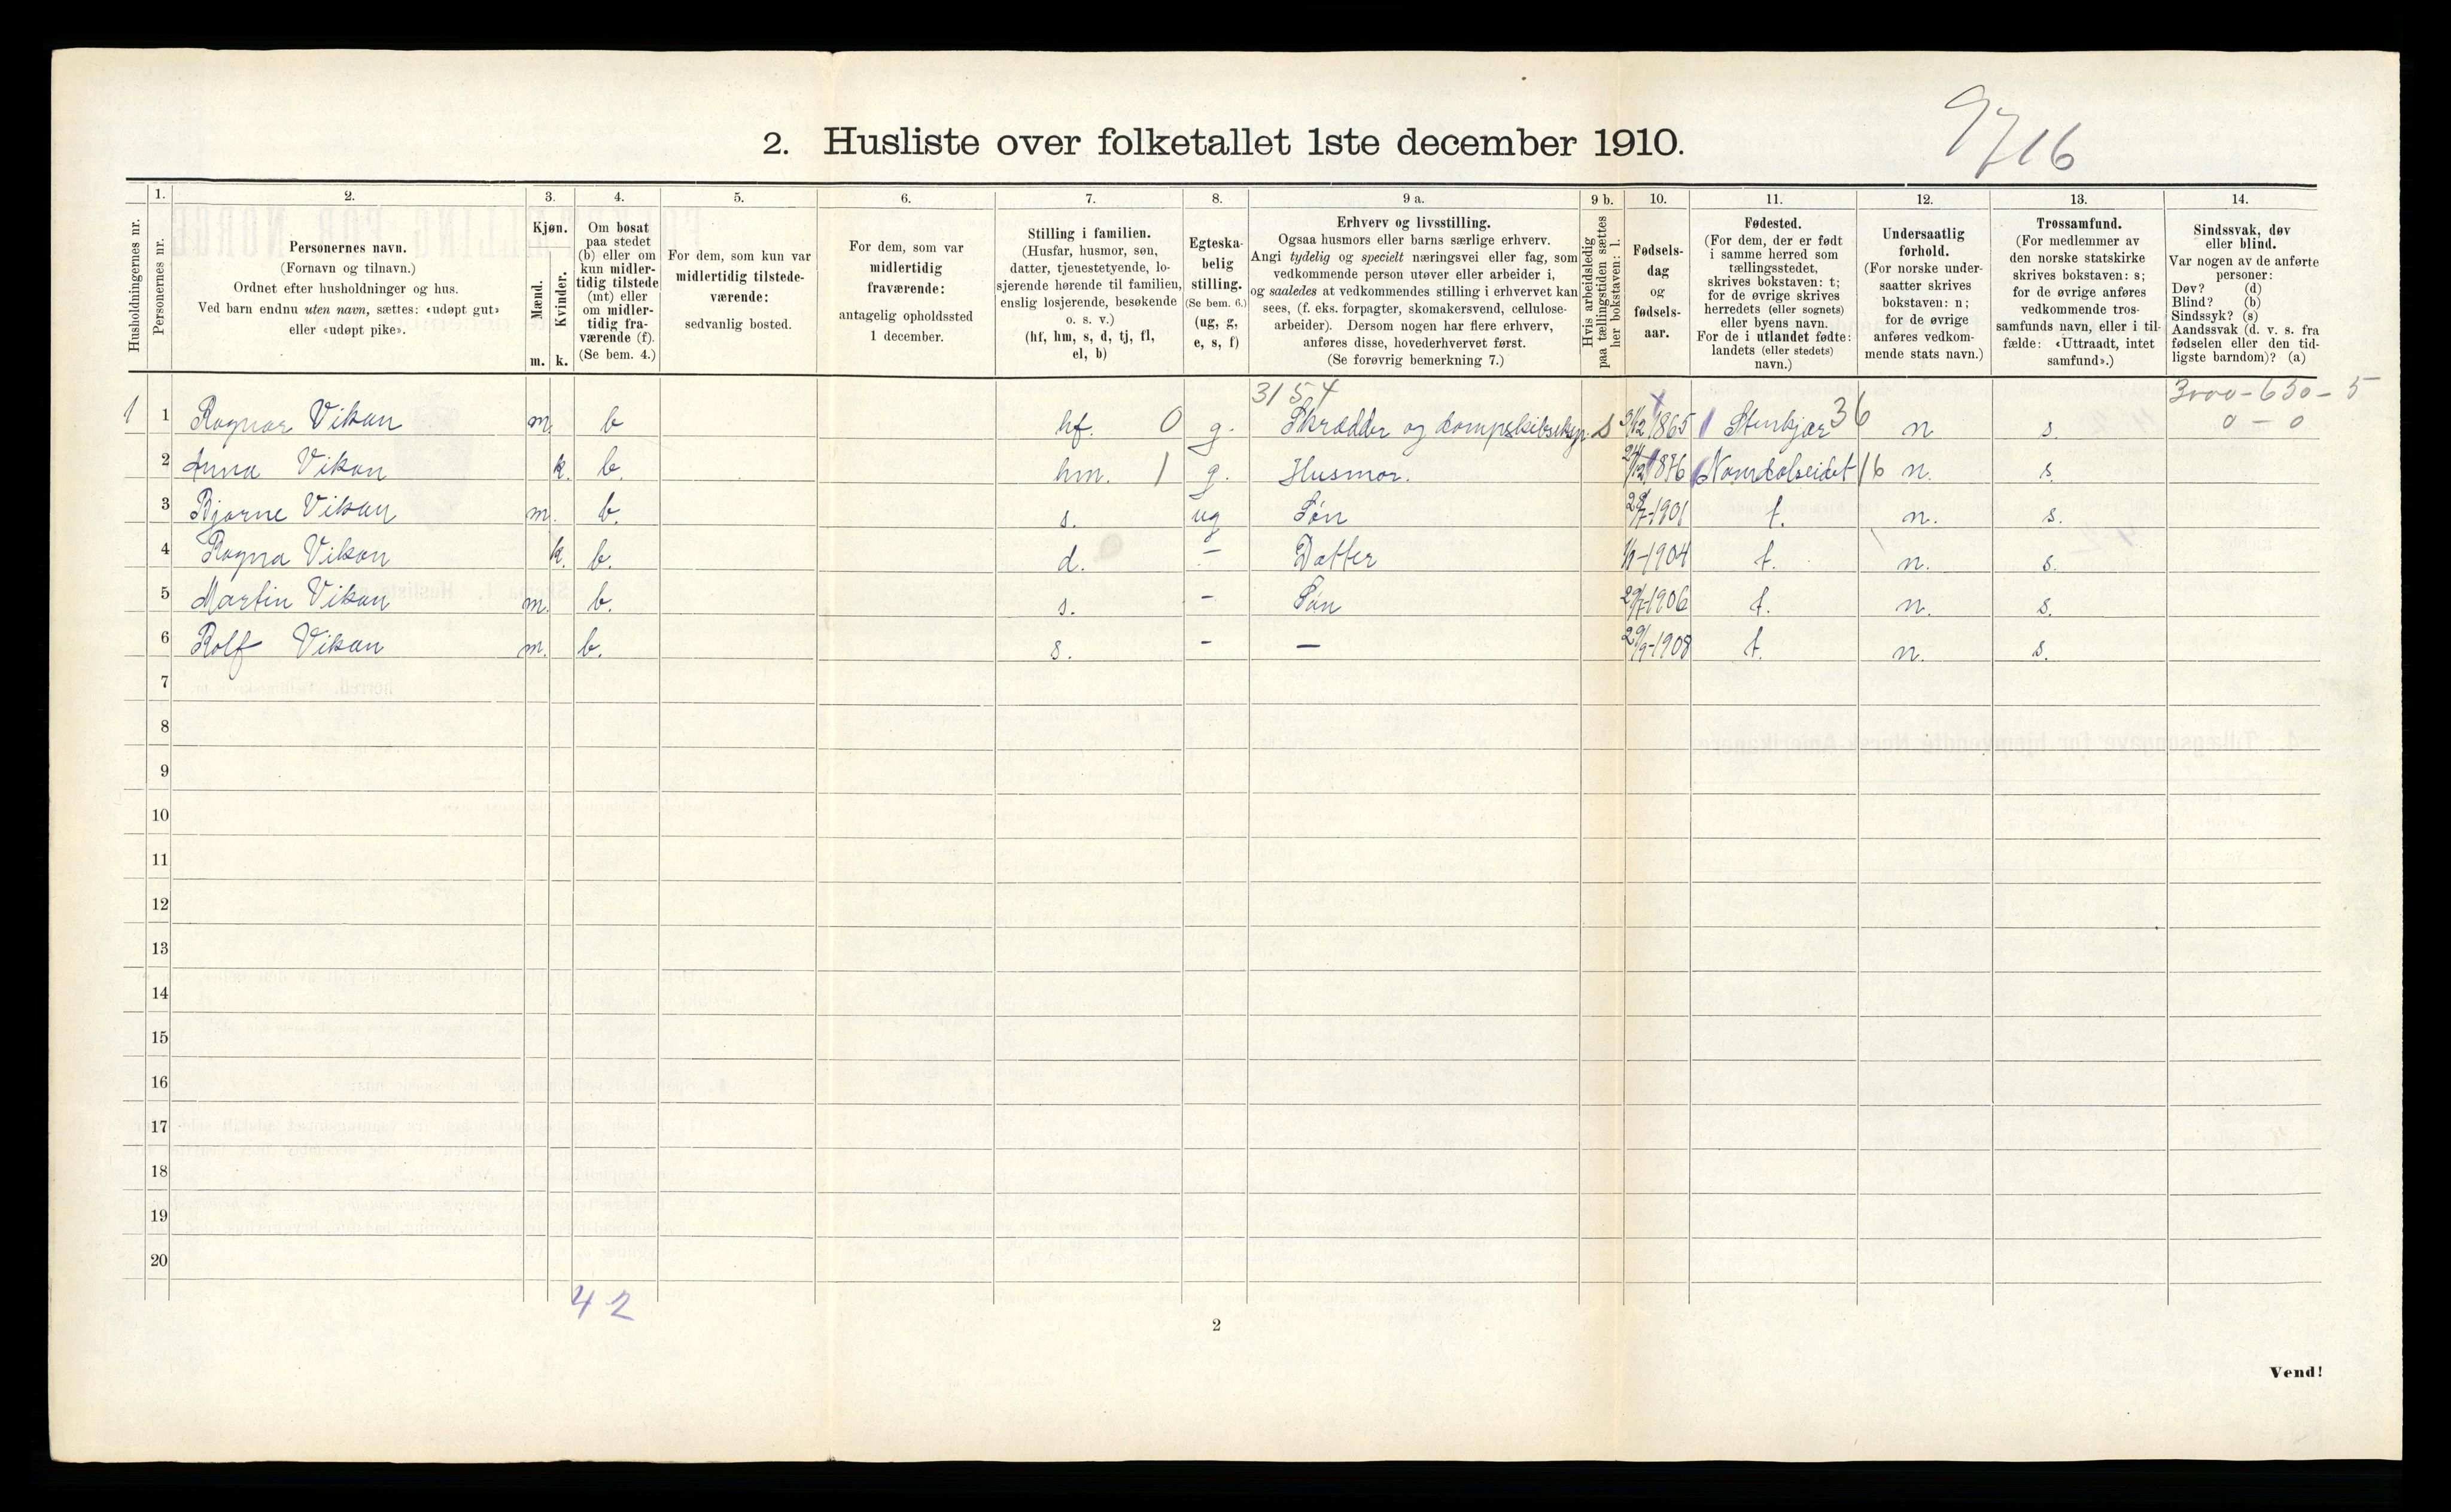 9716
2. Husliste over folketallet 1ste december 1910.
Husholdningernes nr.
1.
Personernes nr.
2.
Personernes navn.
(Fornavn og tilnavn.)
Ordnet efter husholdninger og hus.
Ved barn endnu uten navn, sættes: «udøpt gut»
eller «udøpt pike».
3.
Kjøn.
Mænd.
m.
Kvinder.
k.
4.
Om bosat
paa stedet
(b) eller om
kun midler-
tidig tilstede
(mt) eller
om midler-
tidig fra-
værende (f).
(Se bem. 4.)
5.
For dem, som kun var
midlertidig tilstede-
værende:
sedvanlig bosted.
6.
For dem, som var
midlertidig
fraværende:
antagelig opholdssted
1 december.
7.
Stilling i familien.
(Husfar, husmor, søn,
datter, tjenestetyende, lo-
sjerende hørende til familien,
enslig losjerende, besøkende
o. s. v.)
(hf, hm, s, d, tj, fl,
el, b)
8.
Egteska-
belig
stilling.
(Se bem. 6.)
(ug, g,
e, s, f)
9 a.
Erhverv og livsstilling.
Ogsaa husmors eller barns særlige erhverv.
Angi tydelig og specielt næringsvei eller fag, som
vedkommende person utøver eller arbeider i,
og saaledes at vedkommendes stilling i erhvervet kan
sees, (f. eks. forpagter, skomakersvend, cellulose-
arbeider). Dersom nogen har flere erhverv,
anføres disse, hovederhvervet først.
(Se forøvrig bemerkning 7.)
9 b.
Hvis arbeidsledig
paa tællingstiden sættes
her bokstaven: l.
10.
Fødsels-
dag
og
fødsels-
aar.
11.
Fødested.
(For dem, der er født
i samme herred som
tællingsstedet,
skrives bokstaven: t;
for de øvrige skrives
herredets (eller sognets)
eller byens navn.
For de i utlandet fødte:
landets (eller stedets)
navn.)
12.
Undersaatlig
forhold.
(For norske under-
saatter skrives
bokstaven: n;
for de øvrige
anføres vedkom-
mende stats navn.)
13.
Trossamfund.
(For medlemmer av
den norske statskirke
skrives bokstaven: s;
for de øvrige anføres
vedkommende tros-
samfunds navn, eller i til-
fælde: «Uttraadt, intet
samfund».)
14.
Sindssvak, døv
eller blind.
Var nogen av de anførte
personer:
Døv? (d)
Blind? (b)
Sindssyk? (s)
Aandssvak (d. v. s. fra
fødselen eller den tid-
ligste barndom)? (a)
3154 3000-650-5
1 1 Ragnar Vikan m. b hf. 0 g. Skrædder og dampskibseksp. S 1865 Stenkjær 36 n s. 0-0
2 Anna Vikan k. b. hm. 1 g. Husmor. 24/12 1876 Namdalseidet 16 n. s
3 Bjarne Vikan m. b. s. ug Søn 1901 t. n. s.
4 Ragna Vikan k. b. d. - Datter 1904 t. n. s.
5 Martin Vikan m. b. s. - Søn 29/7-1906 t. n. s.
6 Rolf Vikan m. b. s. - - 29/9-1908 t. n. s.
7
8
9
10
11
12
13
14
15
16
17
18
19
20
42
2
Vend!